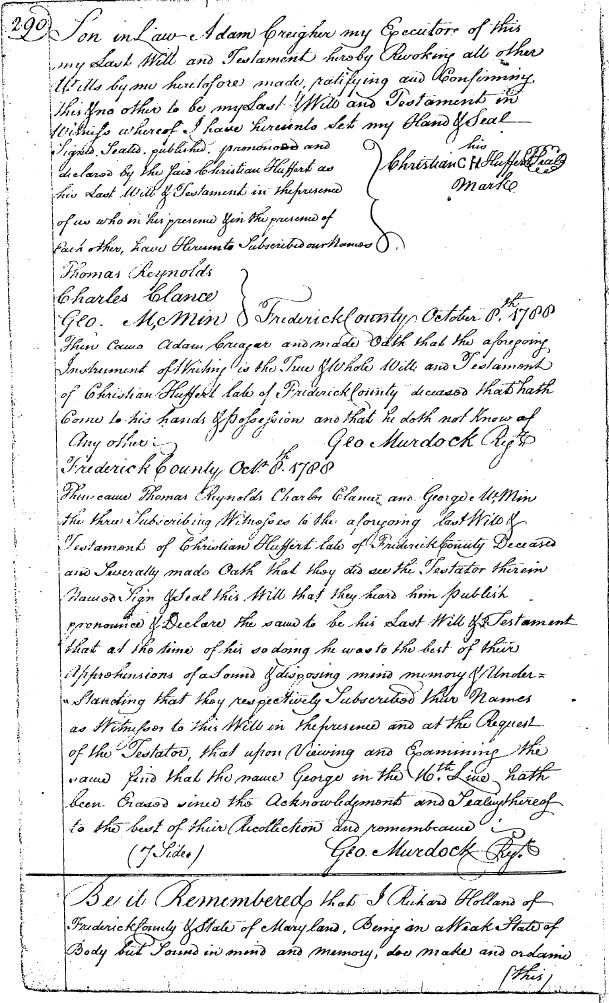 290
Son in Law Adam Creigher my Executor of this
my Last Will and Testament hereby Revoking all other
Wills by me heretofore made, ratifying and Confirming
this & no other to be my Last Will and Testament in
Witness whereof I have hereunto Set my Hand & Seal
Signed, Sealed, published, pronounced and
declared by the said Christian Huffert as
his Last Will & Testament in the presence
of us who in his presence & in the presence of
Each other, have Hereunto Subscribed our Names
his
Christian C H Huffert Seal
Mark
Thomas Reynolds
Charles Clance
Geo. McMin
Frederick County October 8th. 1788
Then came Adam Creager and made Oath that the aforegoing
Instrument of Writing is the True & Whole Will and Testament
of Christian Huffert late of Frederick County deceased that hath
Come to his hands & Possession and that he doth not Know of
Any other
Geo Murdock Regtr
Frederick County Octr. 8th. 1788
Then came Thomas Reynolds Charles Clance and George McMin
the three Subscribing Witnesses to the aforegoing last Will &
Testament of Christian Huffert late of Frederick County Deceased
and Severally made Oath that they did see the Testator therein
Named Sign & Seal this Will that they heard him Publish
pronounce & Declare the same to be his Last Will & Testament
that at the time of his so doing he was to the best of their
Apprehensions of a Sound & disposing mind memory & Under=
=Standing that they respectively Subscribed their Names
as Witnesses to this Will in the presence and at the Request
of the Testator, that upon Viewing and Examining the
same find that the name George in the 16th. Line hath
been Erased since the Acknowledgment and Sealing thereof
to the best of their Recollection and remembrance
(7 Sides)
Geo. Murdock Regtr
Be it Remembered that I Richard Holland of
Frederick County & State of Maryland, Being in a Weak State of
Body but Sound in mind and memory, doe make and ordaine
(this)